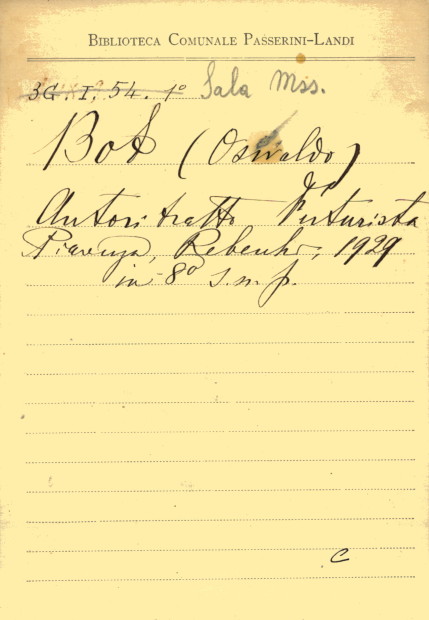 BIBLIOTECA COMUNALE PASSERINI-LANDI
3G. I. 54. 1º Sala Mss.
Bot (Oswaldo)
Autoritratto Futurista
Piacenza, Rebecchi, 1929
in 8º s.n.p.
C